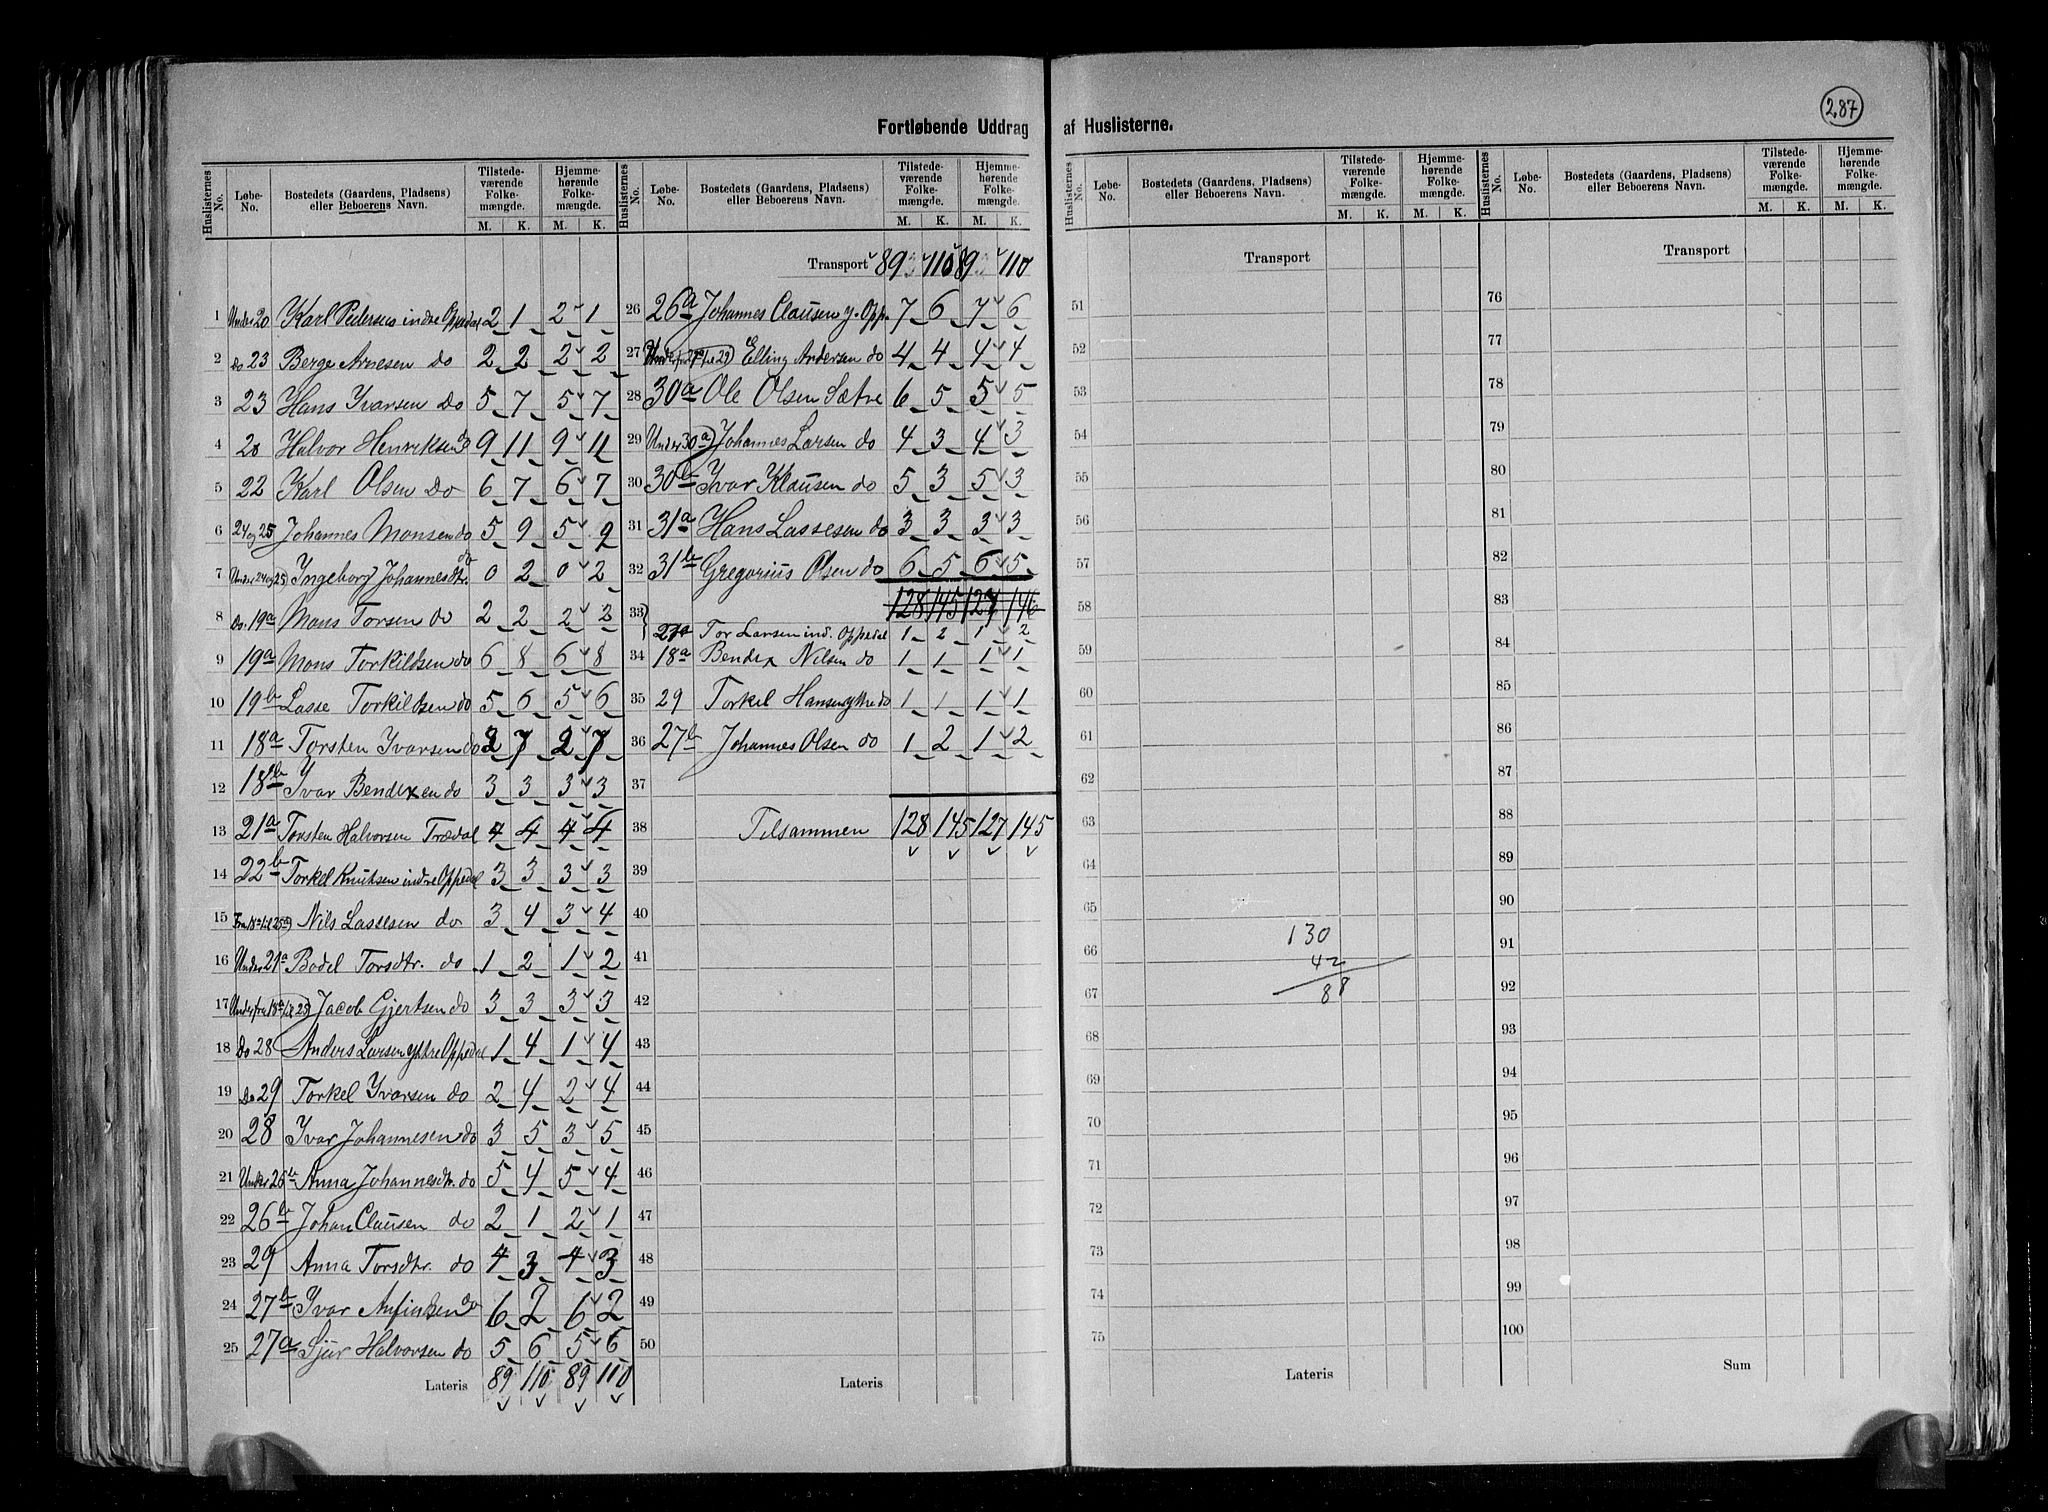 287
Fortløbende Uddrag af Huslisterne.
Huslisternes No. Løbe-No. Bostedets (Gaardens, Pladsens) eller Beboerens Navn. Tilstedeværende Folkemængde. M. K. Hjemmehørende Folkemængde. M. K.
1 Under 20 Karl Pedersen indre Oppedal 2 1 2 1
2 Do 23 Berge Arnesen do 2 2 2 2
3 23 Hans Ivarsen Do 5 7 5 7
4 20 Halvor Henriksen do 9 11 9 11
5 22 Karl Olsen Do 6 7 6 7
6 24 og 25 Johannes Monsen do 5 9 5 9
7 Under 24 og 25) Ingeborg Johannesdtr. do 0 2 0 2
8 Do. 19a Mons Torsen do 2 2 2 2
9 19a Mons Torkildsen do 6 8 6 8
10 19b Lasse Torkildsen do 5 6 5 6
11 18a Torsten Ivarsen do 2 7 2 7
12 18b Ivar Bendixen do 3 3 3 3
13 21a Torsten Halvorsen Trædal 4 4 4 4
14 22b Torkel Knutsen indre Oppedal 3 3 3 3
15 Fra 18a til 25a) Nils Lassesen do 3 4 3 4
16 Under 21a Bodel Torsdtr. do 1 2 1 2
17 Under fra 18a til 25) Jacob Gjertsen do 3 3 3 3
18 Do 28 Anders Larsen yttre Oppedal 1 4 1 4
19 Do 29 Torkel Ivarsen do 2 4 2 4
20 28 Ivar Johannesen do 3 5 3 5
21 Under 26b Anna Johannesdtr. do 5 4 5 4
22 26b Johan Clausen do 2 1 2 1
23 29 Anna Torsdtr. do 4 3 4 3
24 27b Ivar Anfindsen do 6 2 6 2
25 27a Sjur Halvorsen do 5 6 5 6
Lateris 89 110 89 110
Huslisternes No. Løbe-No. Bostedets (Gaardens, Pladsens) eller Beboerens Navn. Tilstedeværende Folkemængde. M. K. Hjemmehørende Folkemængde. M. K.
Transport 89 110 89 110
26 26a Johannes Clausen y. Opp. 7 6 7 6
27 Elling Andersen do 4 4 4 4
28 30a Ole Olsen Sætre 6 5 5 5
29 Under 30a) Johannes Larsen do 4 3 4 3
30 30b Ivar Klausen do 5 3 5 3
31 31a Hans Lassesen do 3 3 3 3
32 31b Gregorius Olsen do 6 5 6 5
128 145 127 146
33 21a Tor Larsen ind. Oppedal 1 2 1 2
34 18a Bendix Nilsen do 1 1 1 1
35 29 Torkel Hansen yttre do 1 1 1 1
36 27b Johannes Olsen do 1 2 1 2
37
38 Tilsammen 128 145 127 145
39
40
41
42
43
44
45
46
47
48
49
50
Lateris
Huslisternes No. Løbe-No. Bostedets (Gaardens, Pladsens) eller Beboerens Navn. Tilstedeværende Folkemængde. M. K. Hjemmehørende Folkemængde. M. K.
Transport
51
52
53
54
55
56
57
58
59
60
61
62
63
64
65
130
66
42
67
88
68
69
70
71
72
73
74
75
Lateris
Huslisternes No. Løbe-No. Bostedets (Gaardens, Pladsens) eller Beboerens Navn. Tilstedeværende Folkemængde. M. K. Hjemmehørende Folkemængde. M. K.
Transport
76
77
78
79
80
81
82
83
84
85
86
87
88
89
90
91
92
93
94
95
96
97
98
99
100
Sum